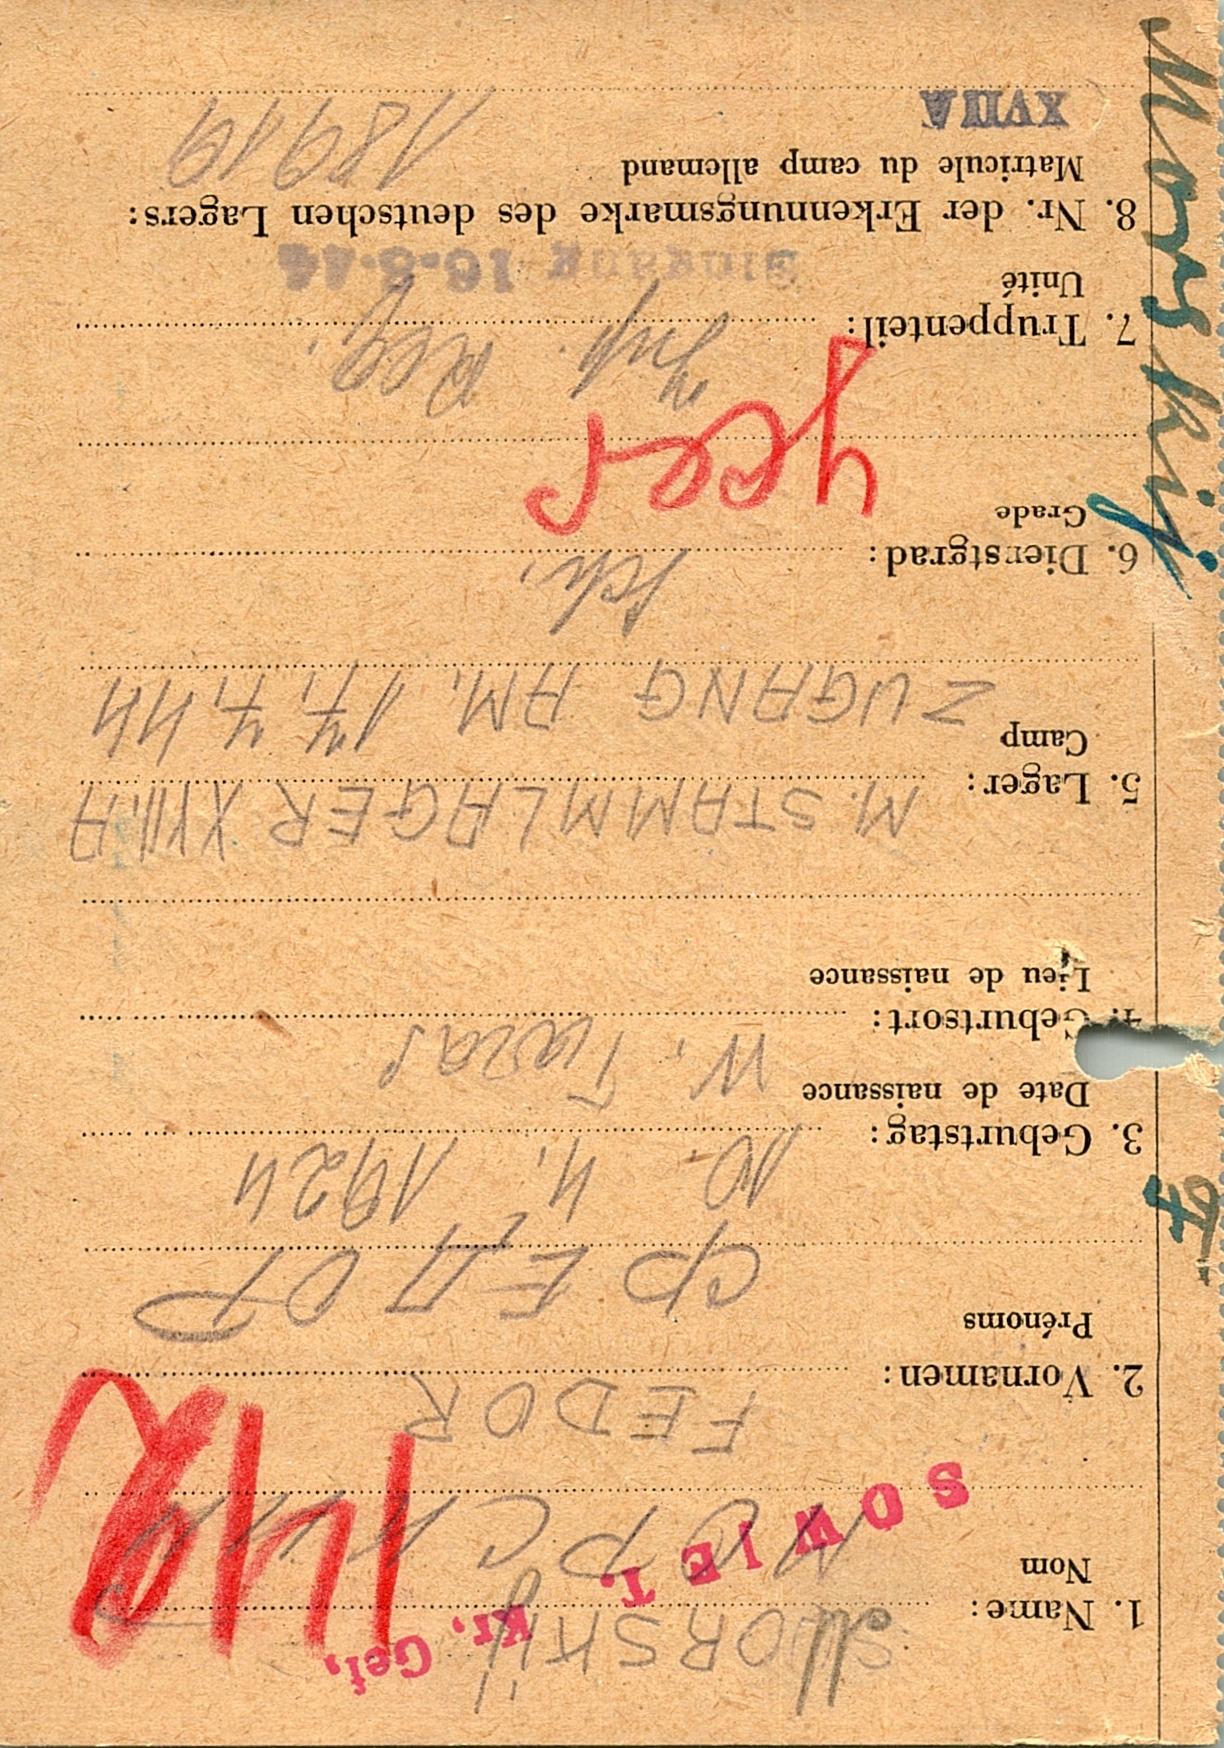 1. Name: MORSKIJ
Nom
SOWJET. Kr. Gef,
МОРСКИЙ
2. Vornamen: FEDOR
Prénoms
ФЕДОР
3. Geburtstag: 10. 4. 1924
Date de naissance
4. Geburtsort: W.
Lieu de naissance
5. Lager: M. STAMMLAGER XVII.A
Camp
ZUGANG AM. 17. 7. 44
6. Dienstgrad: Sch.
Grade
7. Truppenteil: Inf. Reg.
Unité
Eingang 16.8.44
8. Nr. der Erkennungsmarke des deutschen Lagers:
Matricule du camp allemand
XVIIA 18919
Morskij
F.